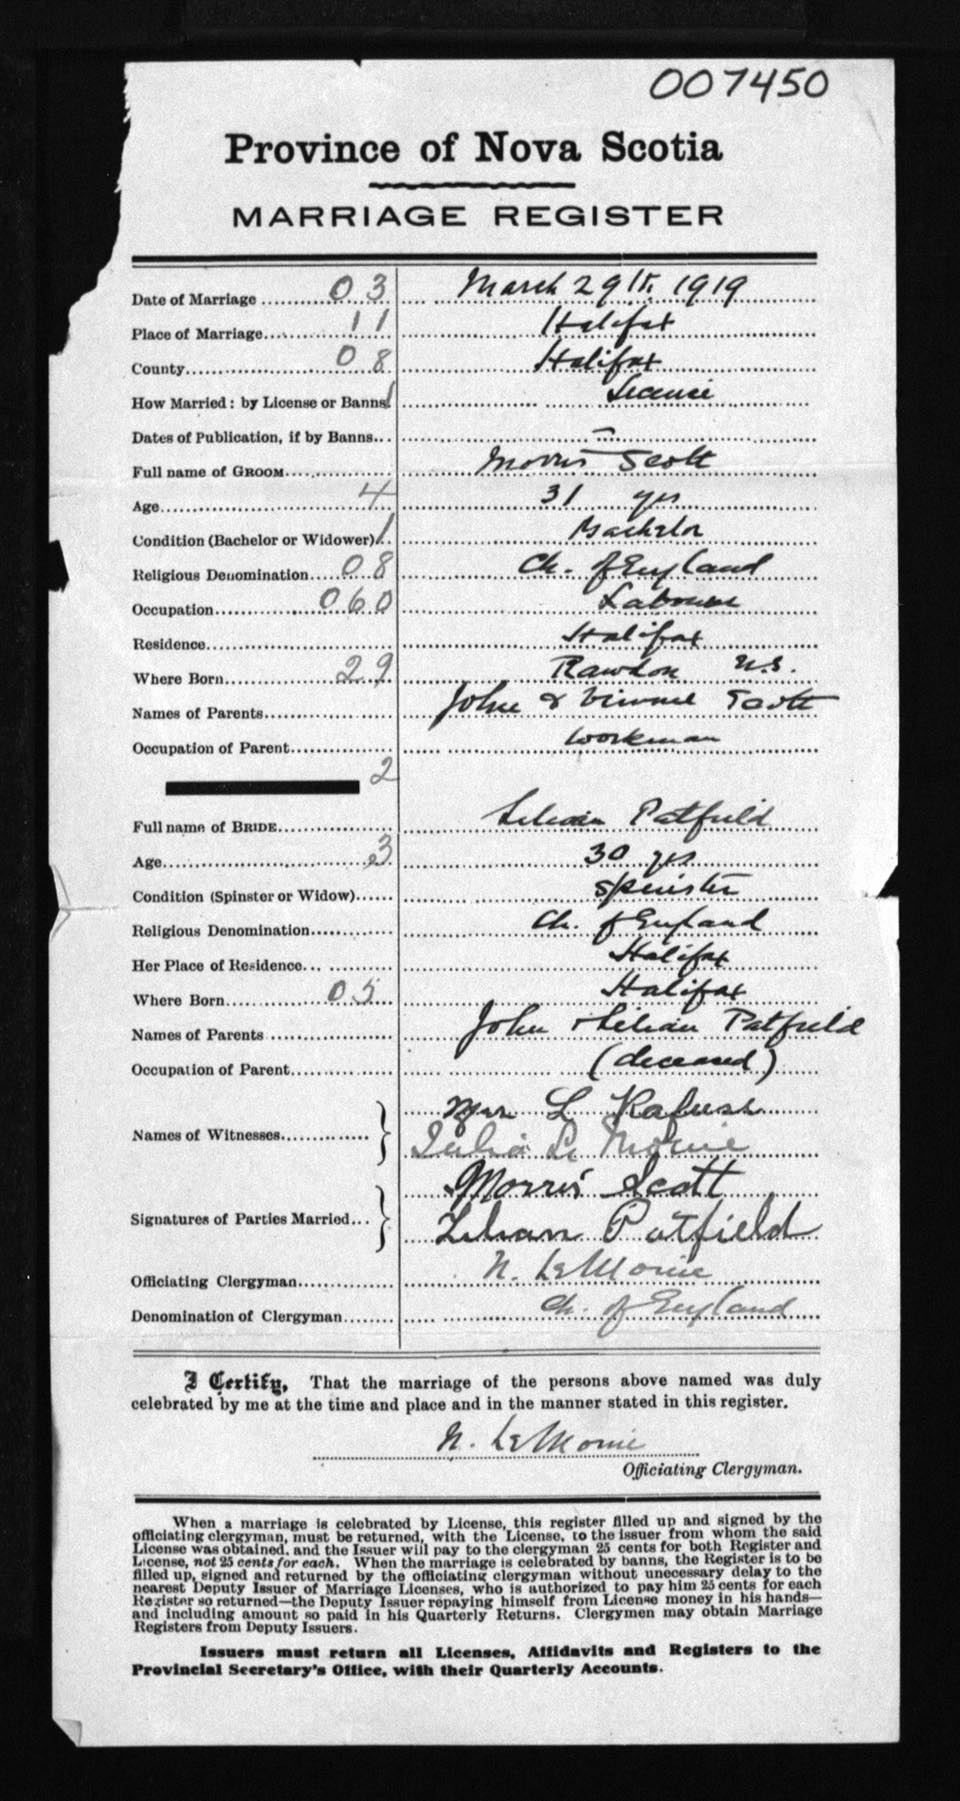 007450
Province of Nova Scotia
MARRIAGE REGISTER
Date of Marriage 03 March 29th, 1919
Place of Marriage 11 Halifax
County 08 Halifax
How Married: by License or Banns 1 License
Dates of Publication, if by Banns... —
Full name of GROOM Morris Scott
Age 4 31 yrs
Condition (Bachelor or Widower) 1 Bachelor
Religious Denomination 08 Ch. of England
Occupation 060 Labourer
Residence Halifax
Where Born 29 Rawdon N.S.
Names of Parents John & Scott
Occupation of Parent Workman
2
Full name of BRIDE Lilian Patfield
Age 3 30 yrs
Condition (Spinster or Widow) Spinster
Religious Denomination Ch. of England
Her Place of Residence Halifax
Where Born 05 Halifax
Names of Parents John & Lilian Patfield
Occupation of Parent (deceased)
Names of Witnesses Mrs L Kafuse
Julia Le Moine
Signatures of Parties Married Morris Scott
Lilian Patfield
Officiating Clergyman N. LeMoine
Denomination of Clergyman Ch. of England
I Certify, That the marriage of the persons above named was duly
celebrated by me at the time and place and in the manner stated in this register.
N. LeMoine
Officiating Clergyman.
When a marriage is celebrated by License, this register filled up and signed by the
officiating clergyman, must be returned, with the License, to the issuer from whom the said
License was obtained, and the Issuer will pay to the clergyman 25 cents for both Register and
License, not 25 cents for each. When the marriage is celebrated by banns, the Register is to be
filled up, signed and returned by the officiating clergyman without unecessary delay to the
nearest Deputy Issuer of Marriage Licenses, who is authorized to pay him 25 cents for each
Register so returned—the Deputy Issuer repaying himself from License money in his hands—
and including amount so paid in his Quarterly Returns. Clergymen may obtain Marriage
Registers from Deputy Issuers.
Issuers must return all Licenses, Affidavits and Registers to the
Provincial Secretary's Office, with their Quarterly Accounts.